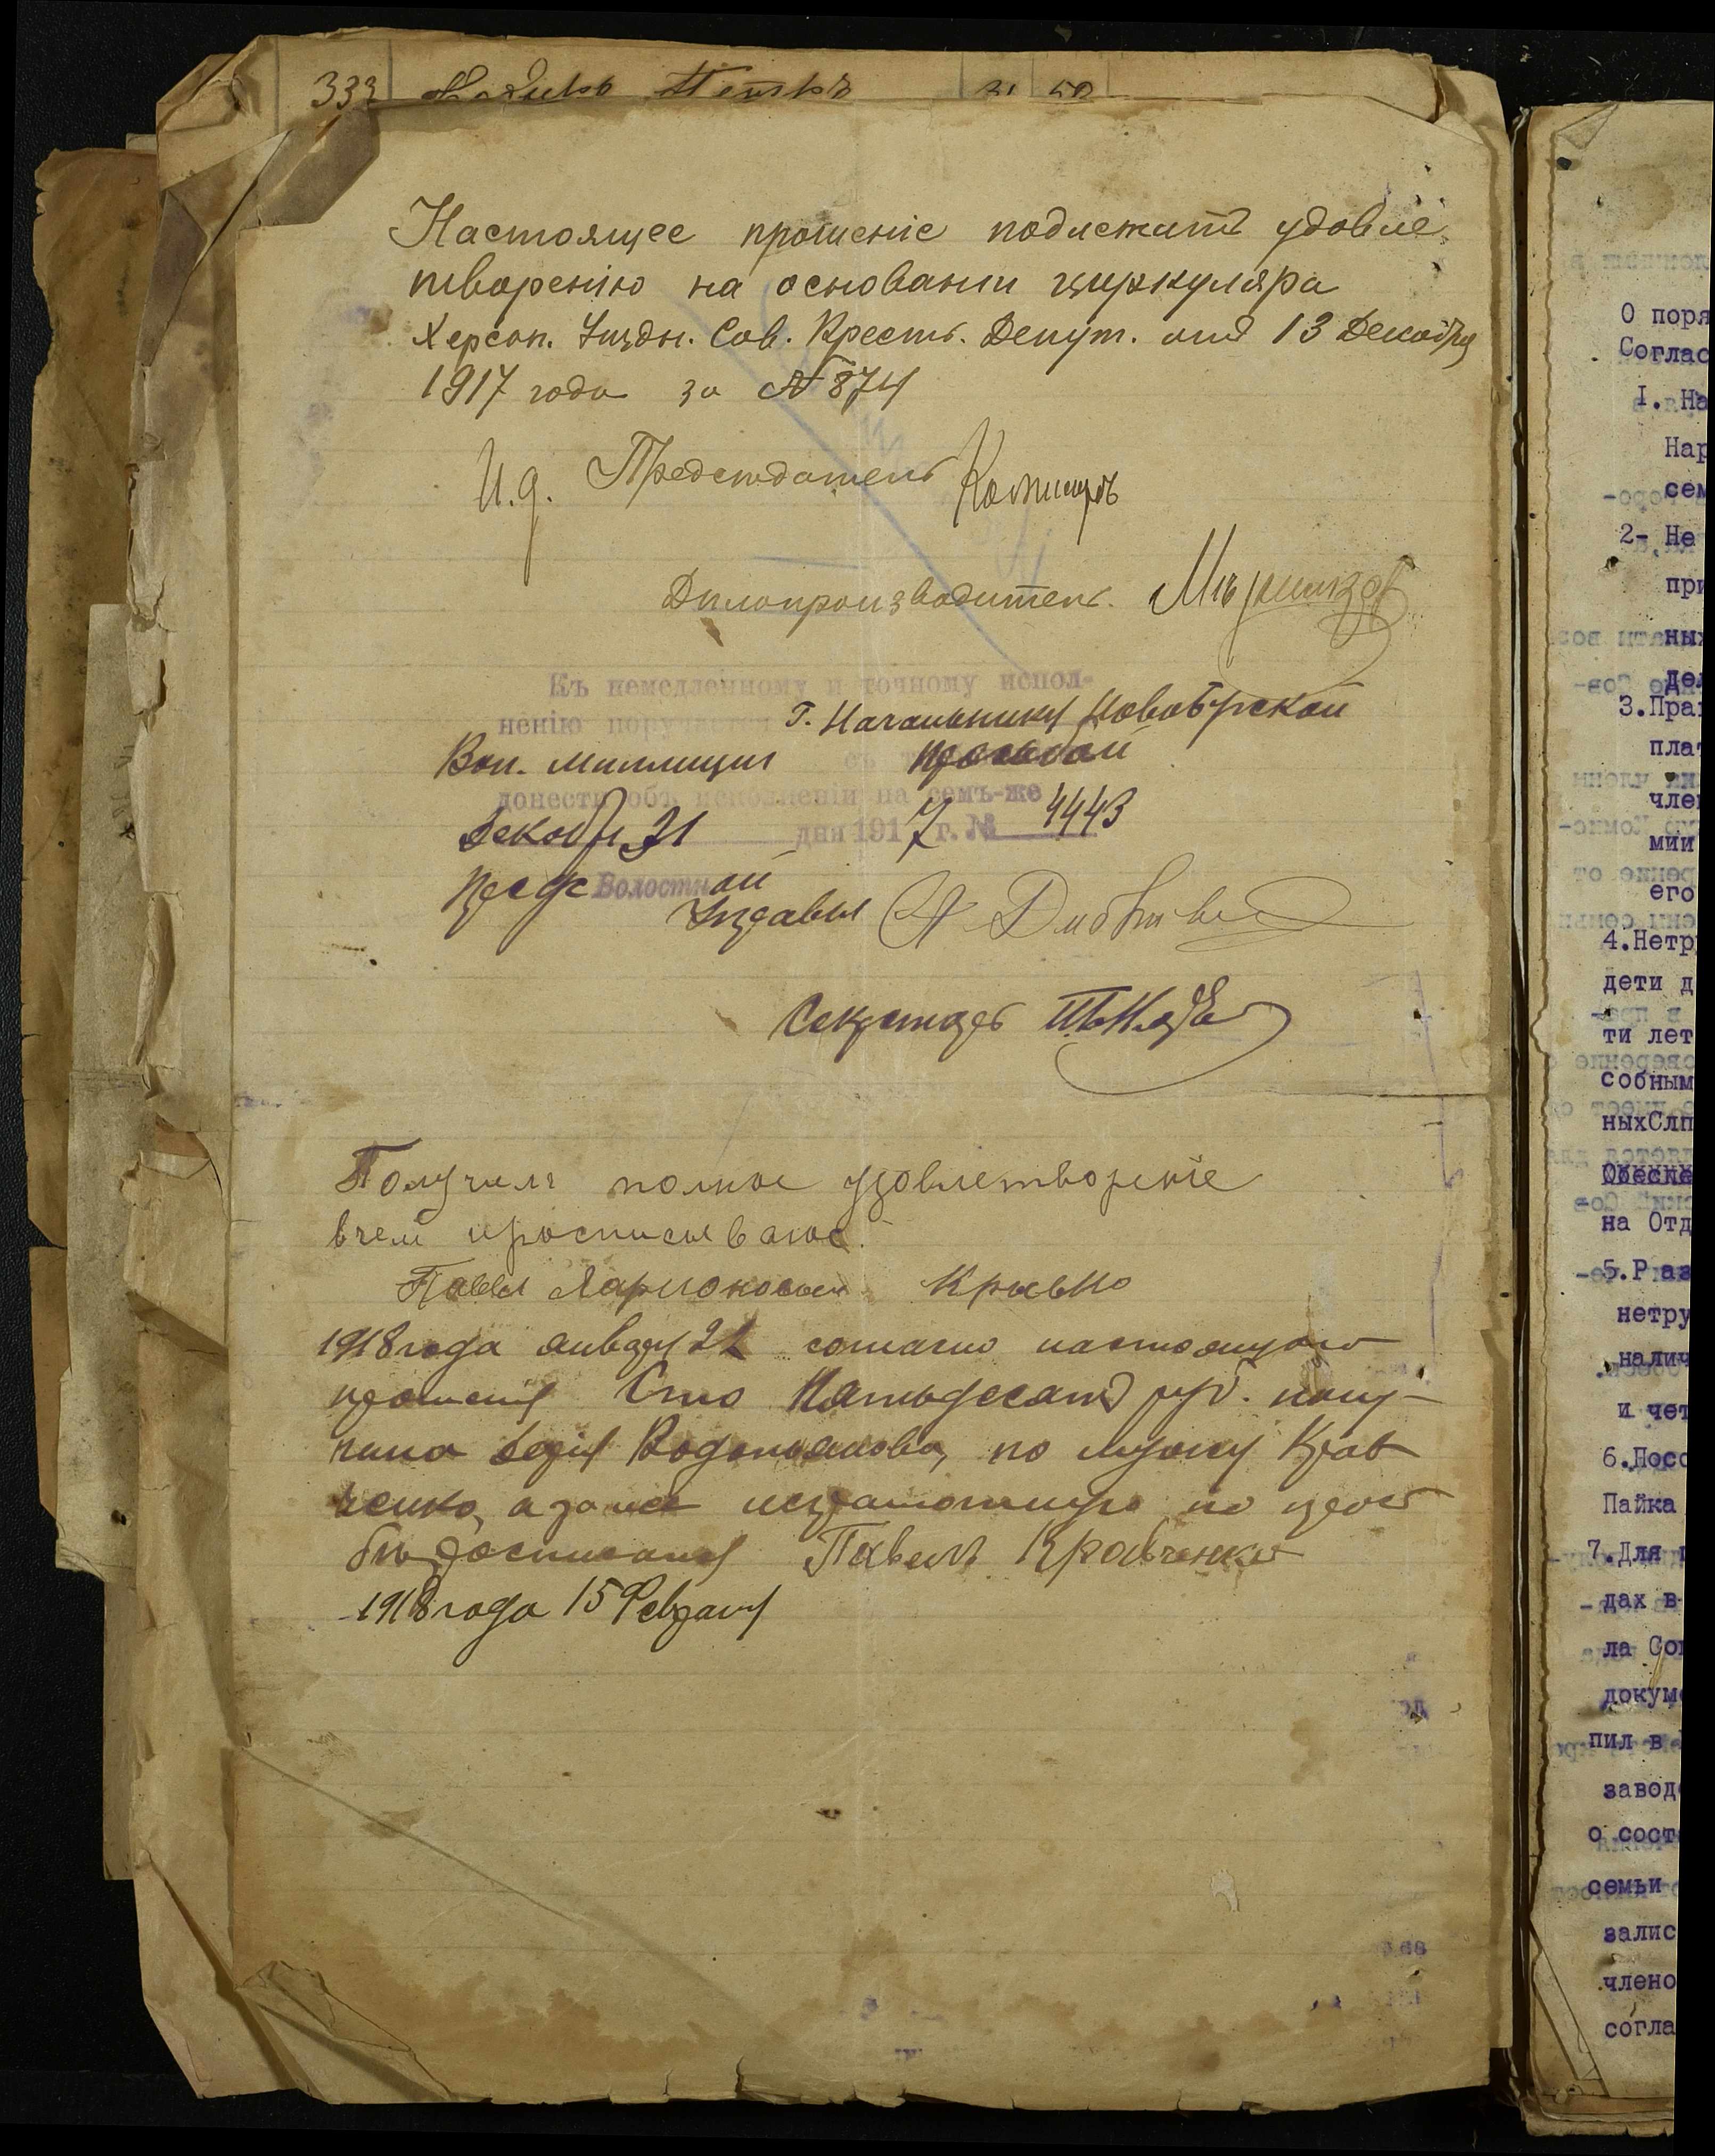 333
31 50
Настоящее прошеніе подлежитъ удовле-
творенію на основании циркуляра
Херсон. Уѣздн. Сов. Крест. Депут. отъ 13 Декабря
1917 года за № 874
И. д. Предсѣдатель
Дѣлопроизводитель.
Къ немедленному и точному испол-
ненію поручается Г. Начальнику
Вол. Милиции съ просьбой
донести объ исполненіи на семъ-же
Декабр. 31 дня 1917 г. № 4443
Предс Волостной
Управы
Секретарь
Получилъ полное удовлетвореніе
вчем
1918 года января 21 согласно настоящого
прошенія Сто Пятьдесятъ руб. полу-
чила Водопьянова, по мужу Крав
ченко, а за нее неграмотную по прось
бѣ росписался Павелъ Кравченко
1918 года 15 Февраля
О поря
Соглас
1. На
Нар
сем
2- Не
при
ных
дел
3.Прав
плат
член
мии
его
4.Нетр
дети д
ти лет
собным
ныхСлп
Обеспе
на Отд
5.Раз
нетру
налич
и чет
6.Посо
Пайка
7.Для п
дах в
ла Сов
докуме
пил в
заводе
о соста
семьи
залис
члено
согла